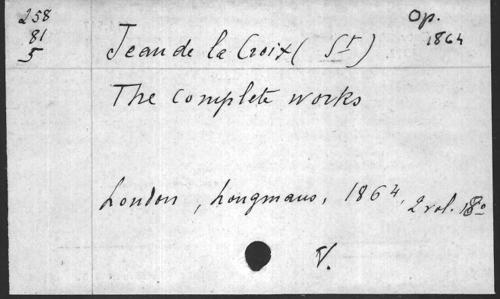 258
81
5
Op.
1864
Jean de la Croix (St)
The complete works
London, Longmans, 1864, 2 vol. 18º
V.